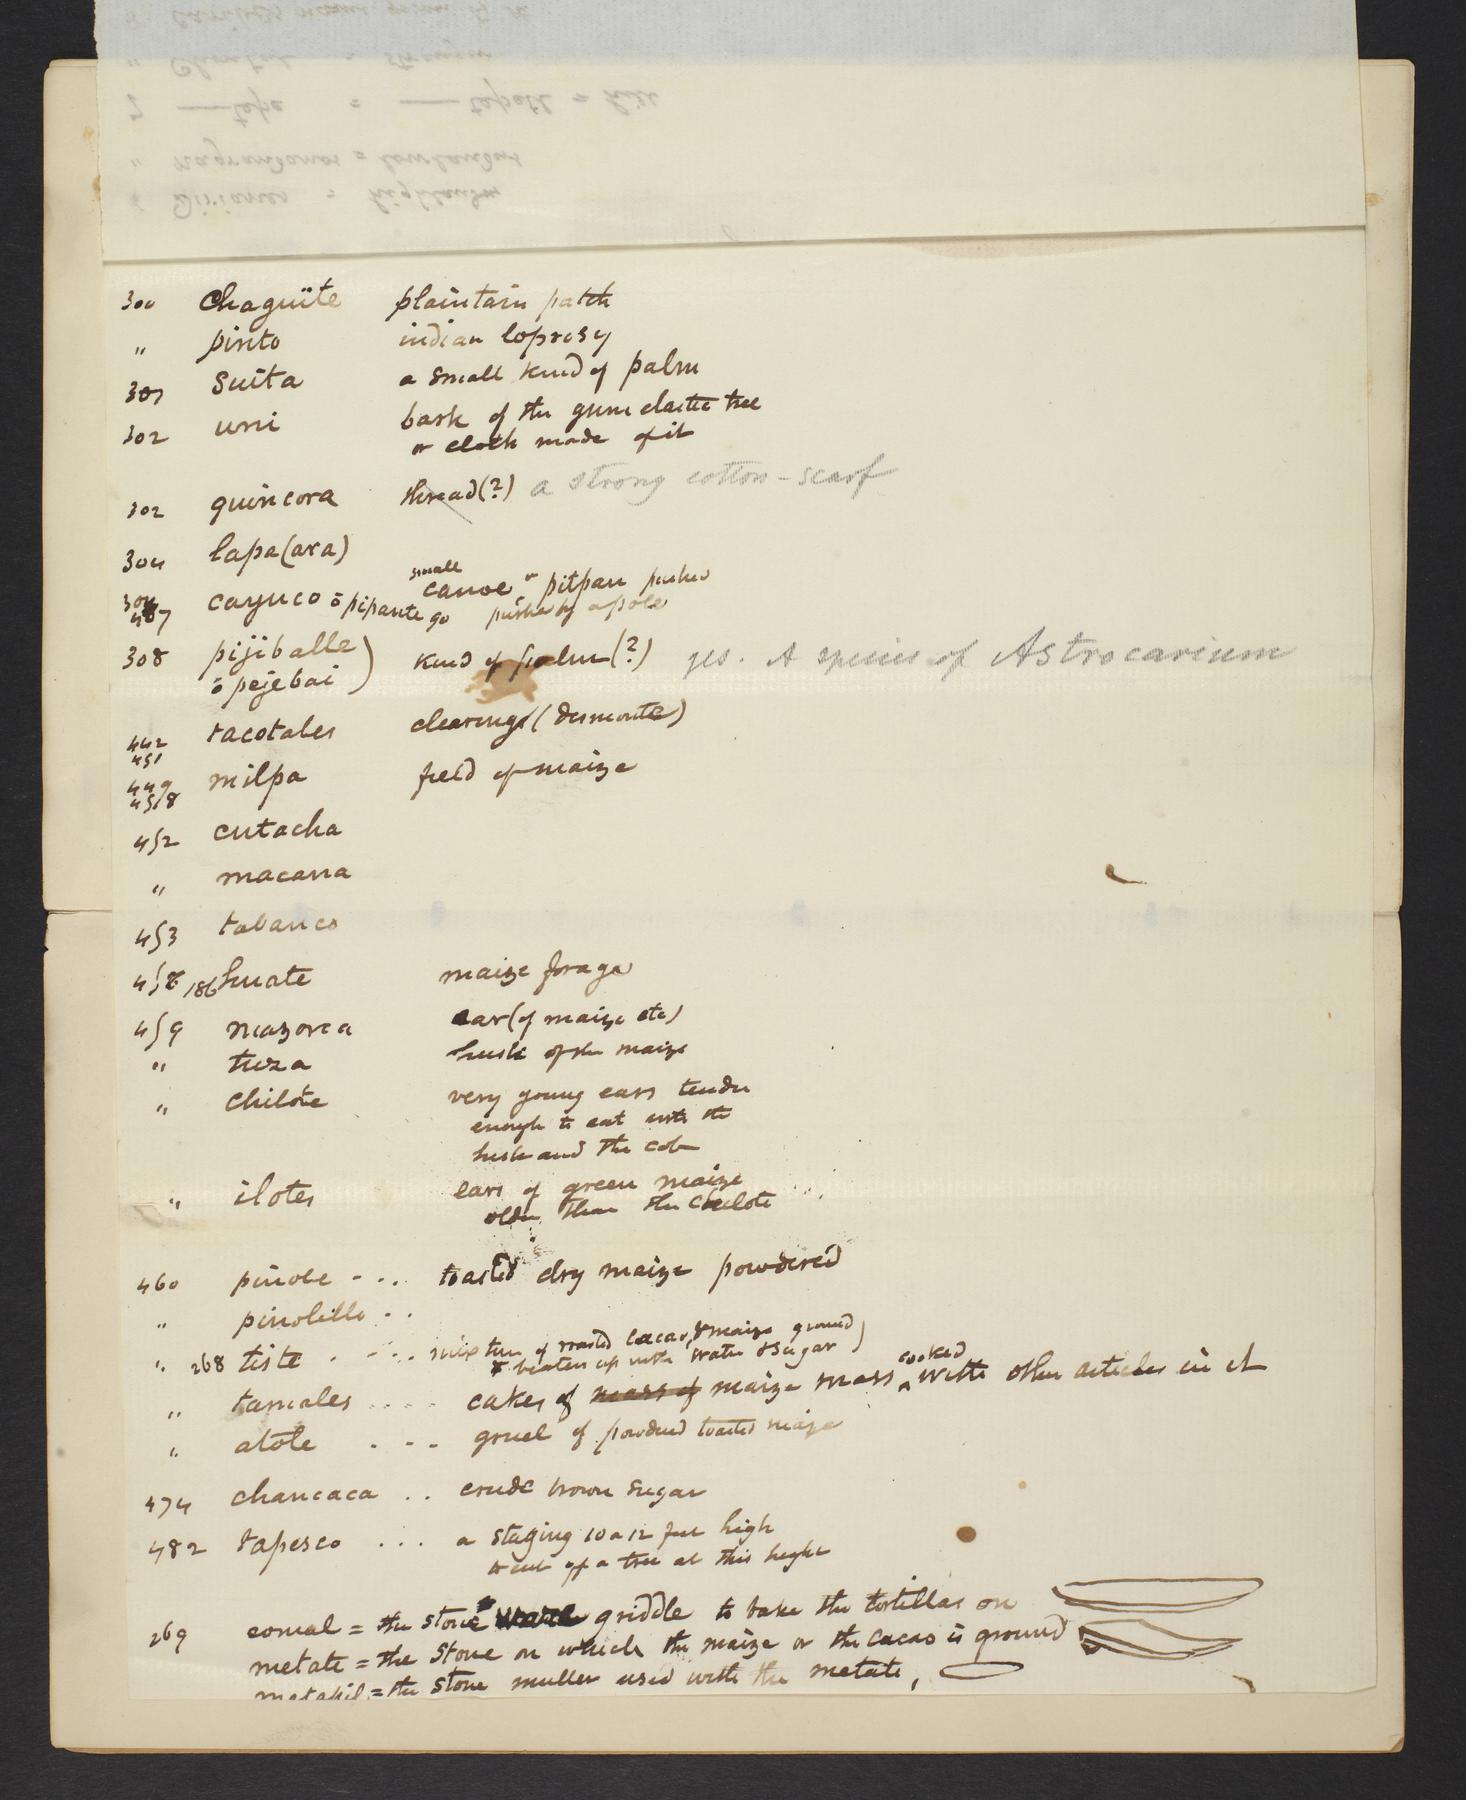 300 Chaguïte plaintain patch
" pinto indian loprosy
301 suita a small kind of palm
302 uni bark of the gum elastic tree
or cloth made of it
302 quincora thread(?) a strong cotton-scarf
304 lapa (ara)
304 cayuco ō pipante small canoe or pitpan pushed
467 go pushed by a pole
308 pijiballe) kind of palm(?) yes. A species of Astrocarium
ō pejebai
442 tacotales clearings (desmonte)
451
449 milpa field of maize
4518
452 cutacha
" macana
453 tabanco
458 186 huate maize forage
459 mazorca ear (of maize etc)
" tuza husk of the maize
" chilote very young ears tender
enough to eat with the
husk and the cob
" ilotes ears of green maize
older than the chilote
460 pinole - . . toasted dry maize powdered
" pinolillo . .
" 268 tiste . - . . mixture of roasted cacao, & maize ground)
& beaten up with water & sugar
" tamales . . . . cakes of mass of maize mass cooked with other articles in it
" atole . - - gruel of powdered toasted maize
474 chancaca . . crude brown sugar
482 tapesco . . . a staging 10 a 12 feet high
to cut off a tree at this height
269 comal = the stone griddle to bake the tortillas on
metate = the stone on which the maize or the cacao is ground
metapil = the stone muller used with the metate,